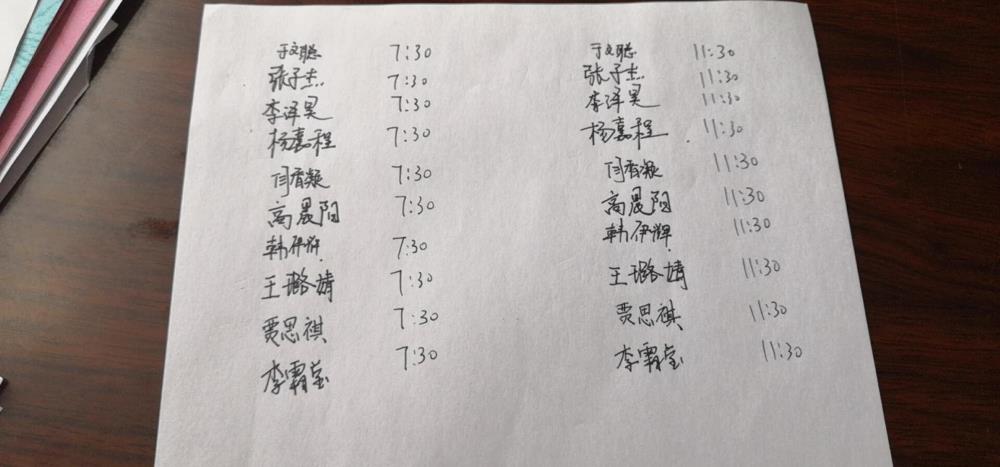 于文聪 7:30 于文聪 11:30
张子杰 7:30 张子杰 11:30
李泽昊 7:30 李泽昊 11:30
杨嘉程 7:30 杨嘉程 11:30
闫香凝 7:30 闫香凝 11:30
高晨阳 7:30 高晨阳 11:30
韩伊辉 7:30 韩伊辉 11:30
王璐婧 7:30 王璐婧 11:30
贾思祺 7:30 贾思祺 11:30
李霸莹 7:30 李霸莹 11:30